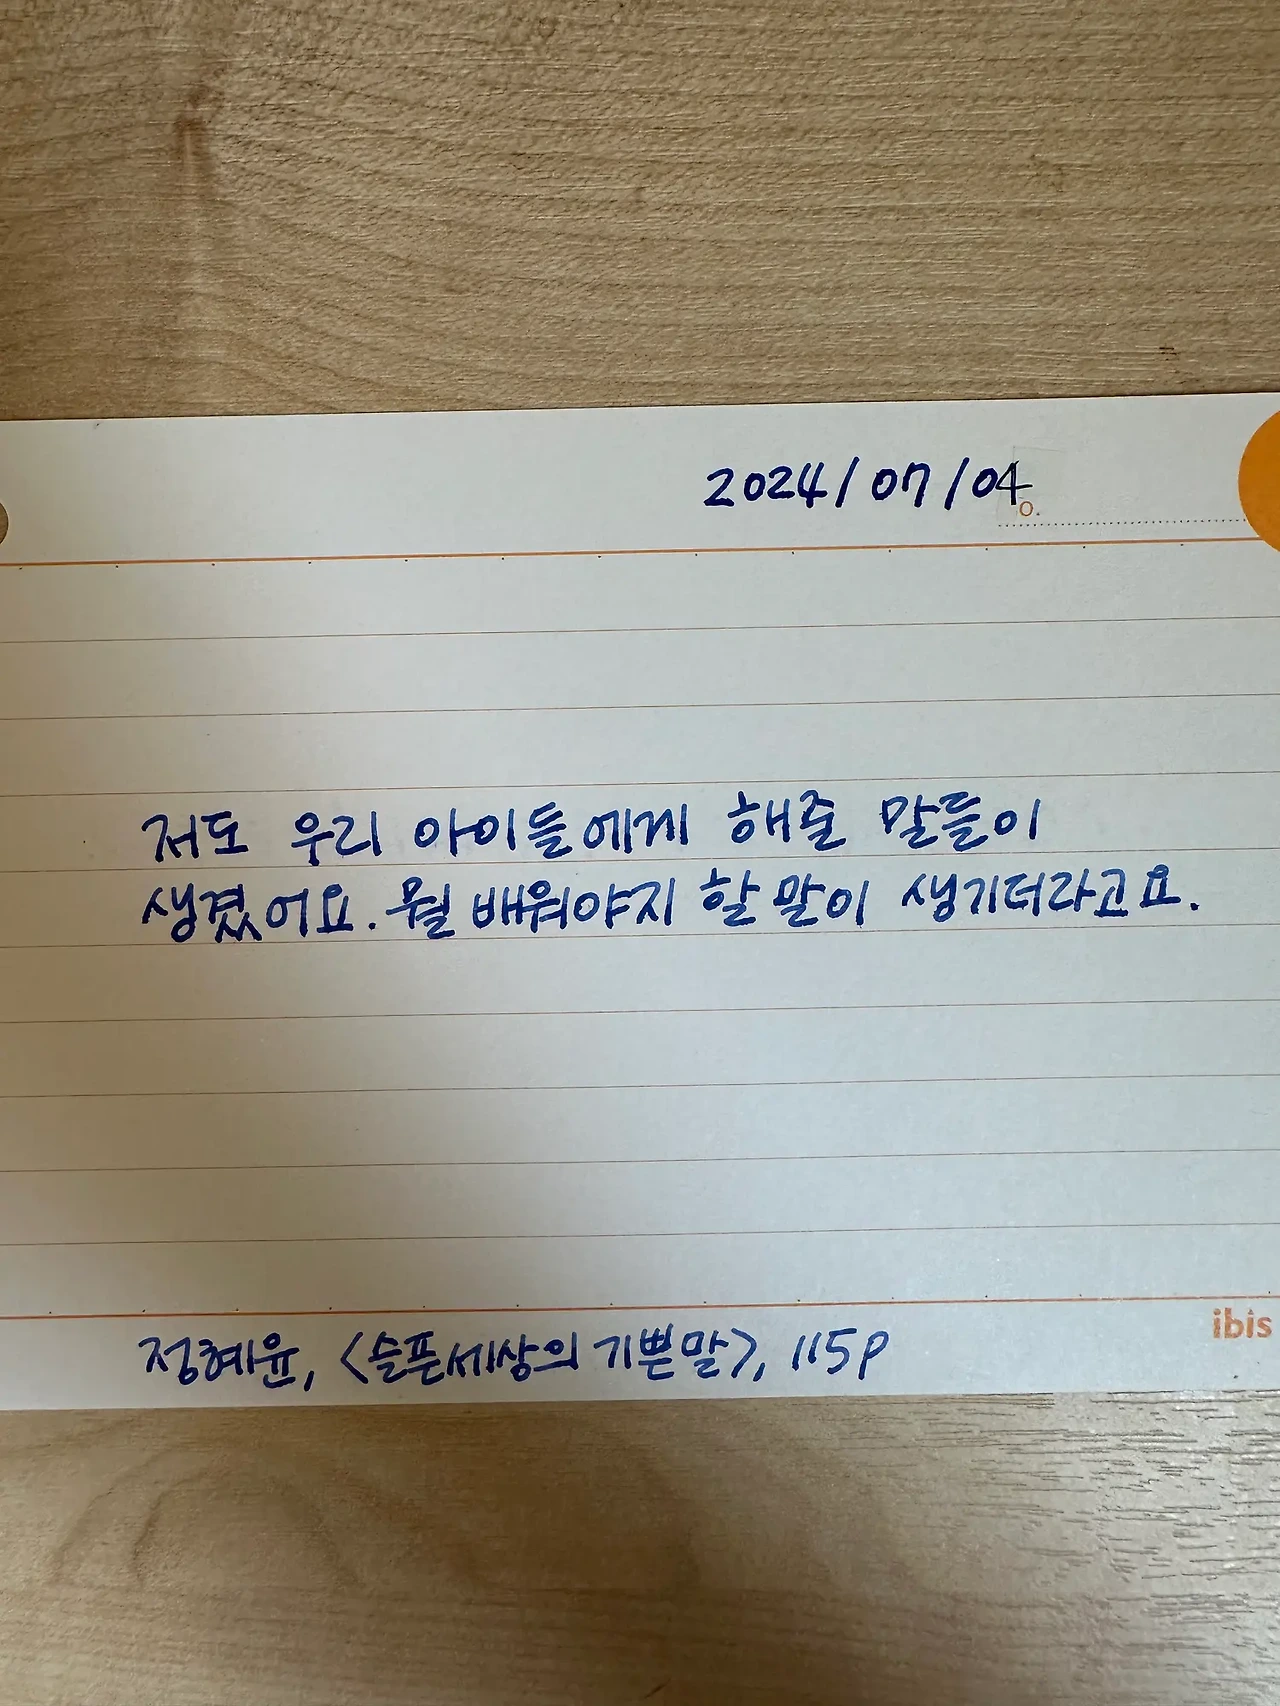 2024/07/04
o.
저도 우리 아이들에게 해줄 말들이
생겼어요. 뭘 배워야지 할 말이 생기더라고요.
ibis
정혜윤, <슬픈세상의 기쁜말>, 115p